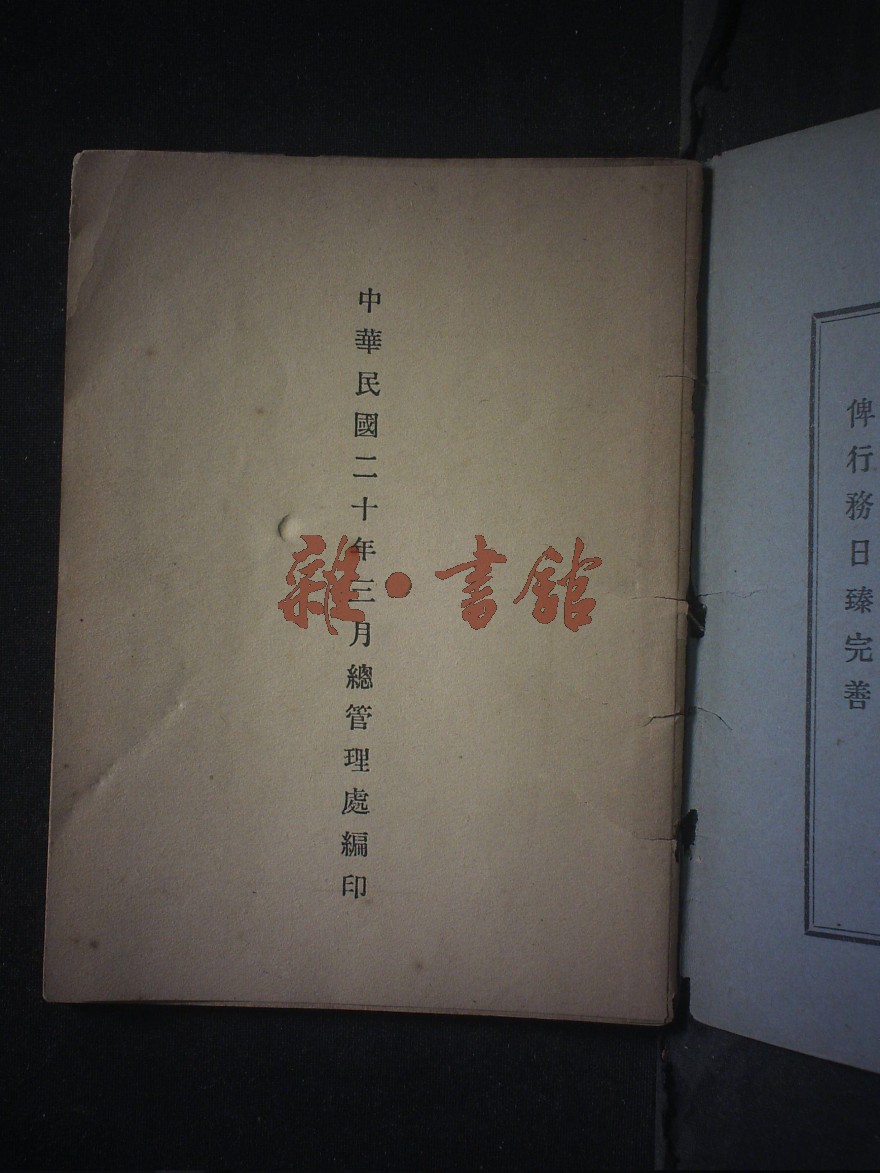 俾行務日臻完善
中華民國二十年三月總管理處編印
雜·書館